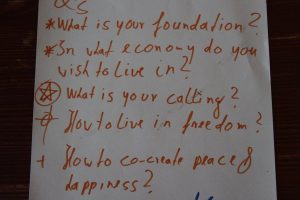 *What is your foundation?
*In what economy do you
wish to live in?
What is your calling?
How to live in freedom?
+ How to co-create peace &
happiness?